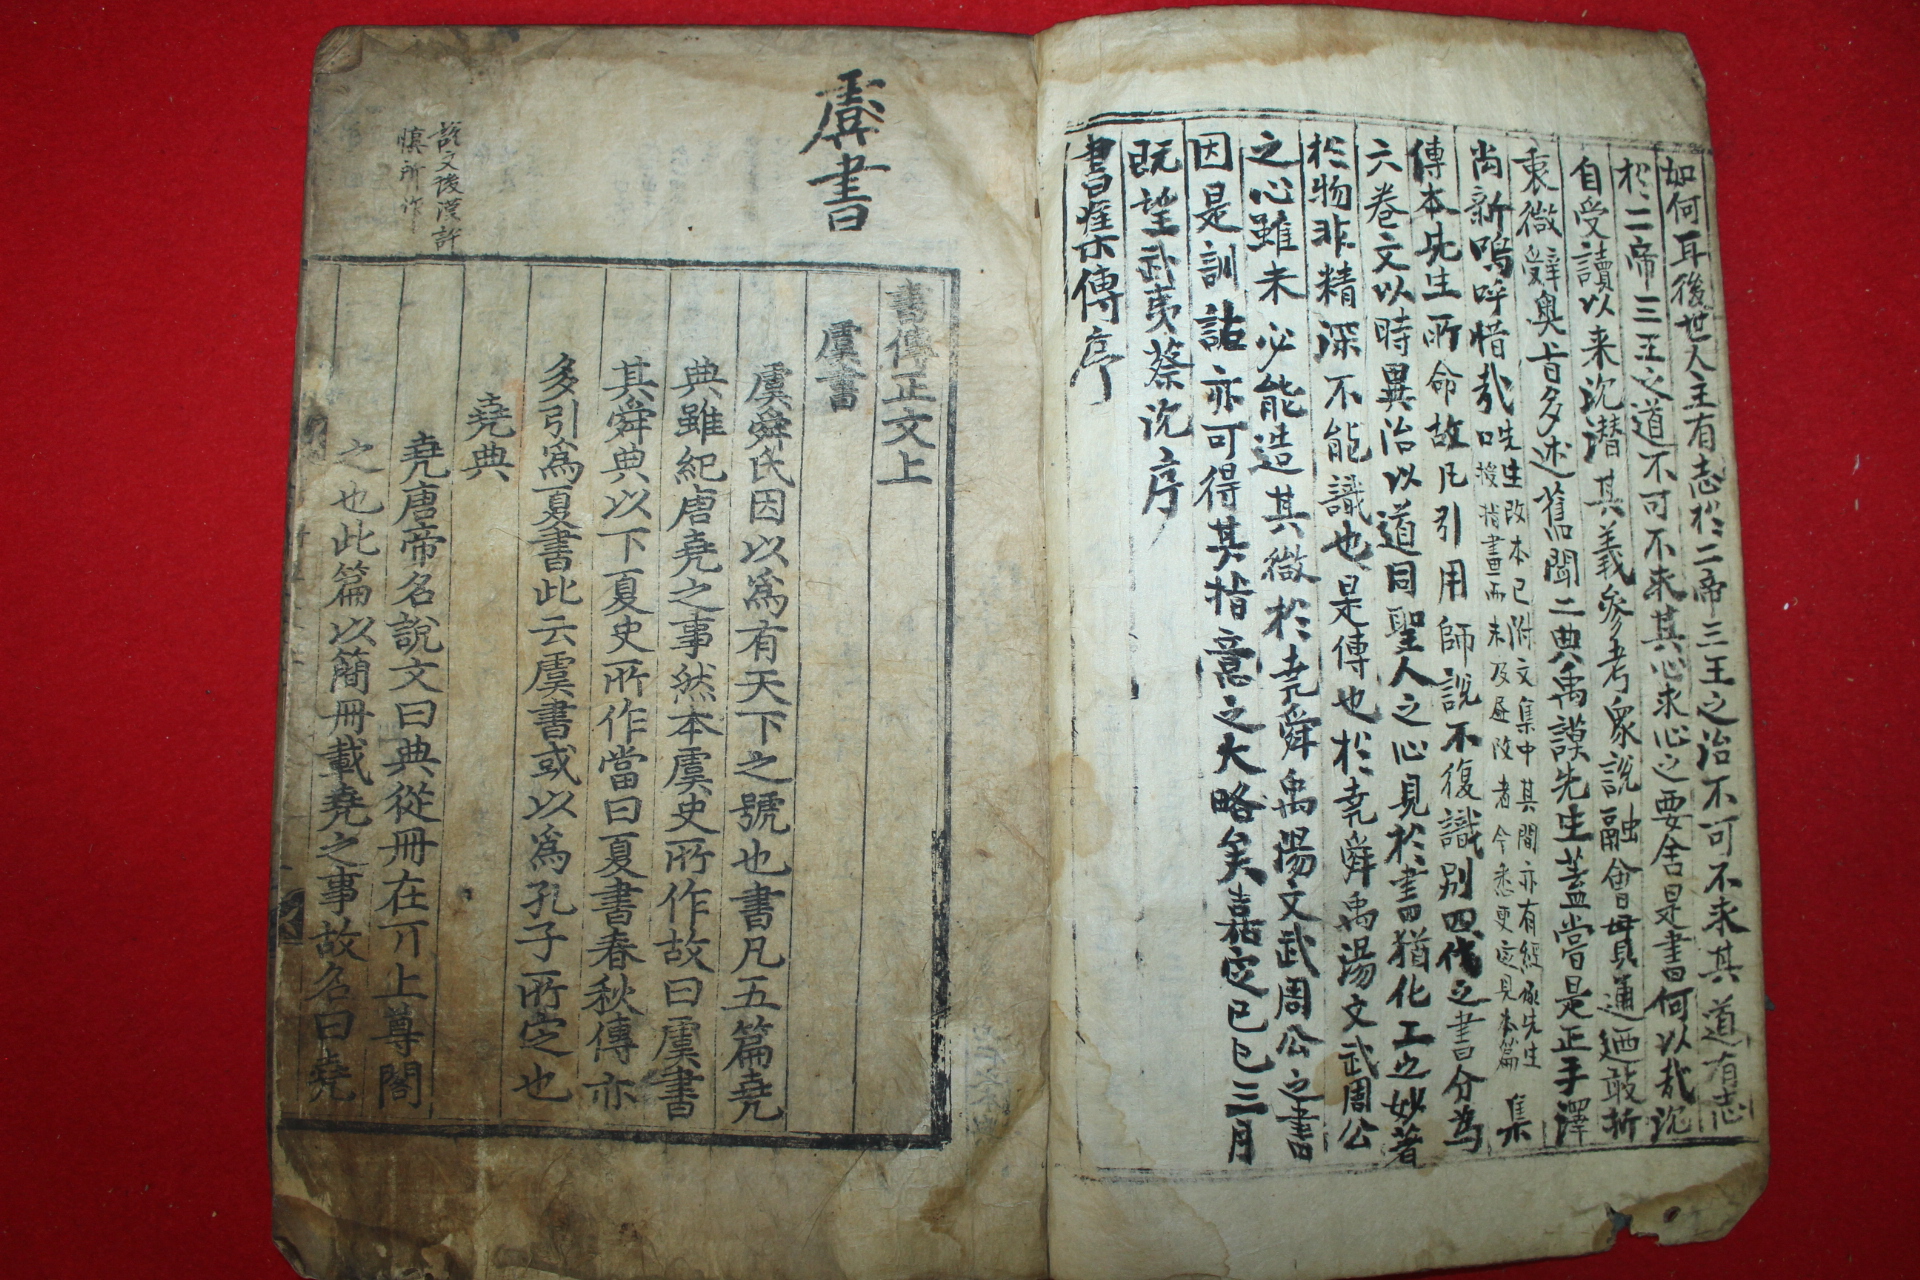 如何耳後世人主有志於二帝三王之治不可不求其道有志
於二帝三王之道不可不求其心求心之要舍是書何以哉沉
自受讀以来沉潜其義參考衆說融會貫通廼敢折
衷微辭奧旨多述舊聞二典禹謨先生蓋嘗是正手澤
尚新嗚呼惜哉
先生改本已附文集中其間亦有經承先生
口授指畫而未及盡改者今悉更定見本篇
集
傳本先生所命故凡引用師說不復識別四代之書分為
六卷文以時異治以道同聖人之心見於書猶化工之妙著
於物非精深不能識也是傳也於尭舜禹湯文武周公
之心雖未必能造其微於尭舜禹湯文武周公之書
因是訓詁亦可得其指意之大略矣嘉定己巳三月
既望武夷蔡沉序
書集傳序
虞書
說文後漢許
慎所作
書傳正文上
虞書
虞舜氏因以爲有天下之號也書凡五篇堯
典雖紀唐堯之事然本虞史所作故曰虞書
其舜典以下夏史所作當曰夏書春秋傳亦
多引爲夏書此云虞書或以爲孔子所定也
堯典
堯唐帝名說文曰典從冊在丌上尊閣
之也此篇以簡冊載堯之事故名曰堯